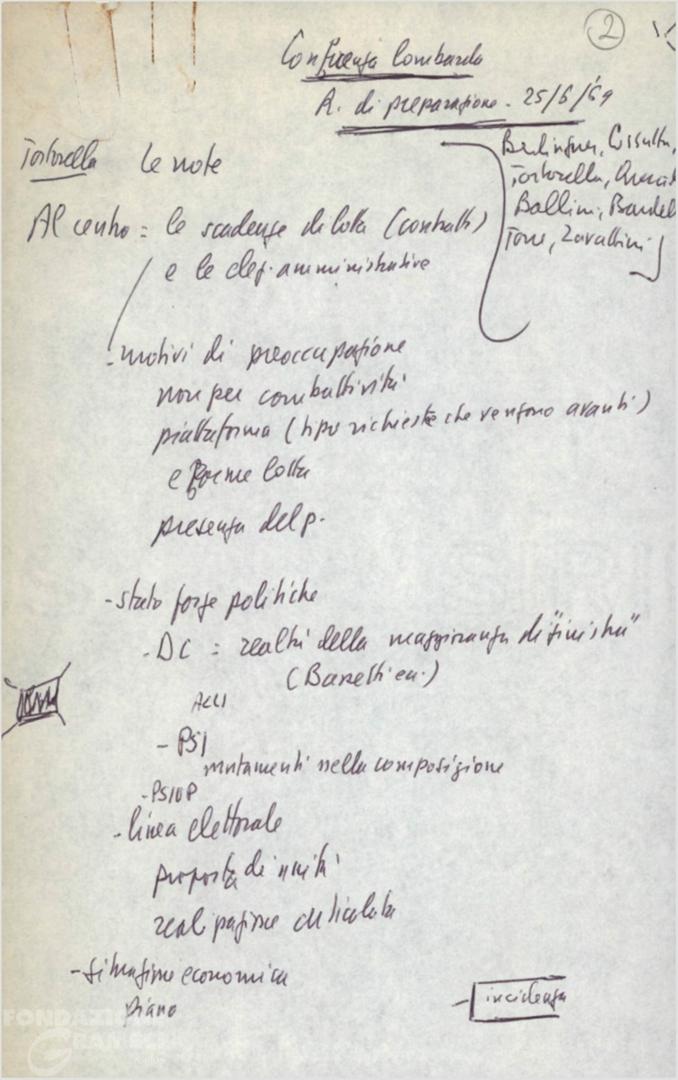 2
Conferenza Lombarda
R. di preparazione - 25/6/'69
Berlinguer, Cossutta,
Tortorella,
Ballini,
Torri, Zavattini
Tortorella le note
Al centro = le scadenze di lotta (contratti)
e le elez. amministrative
- motivi di preoccupazione
non per combattività
piattaforma (tipo richieste che vengono avanti)
e forme lotta
presenza del p.
- stato forze politiche
- DC = realtà della maggioranza di "sinistra"
(Bassetti ecc.)
ACLI
- PSI
mutamenti nella composizione
- PSIUP
- linea elettorale
proposta di unità
realizzazione articolata
- situazione economica
piano
- incidenza
FONDAZIONE
GRAMSCI